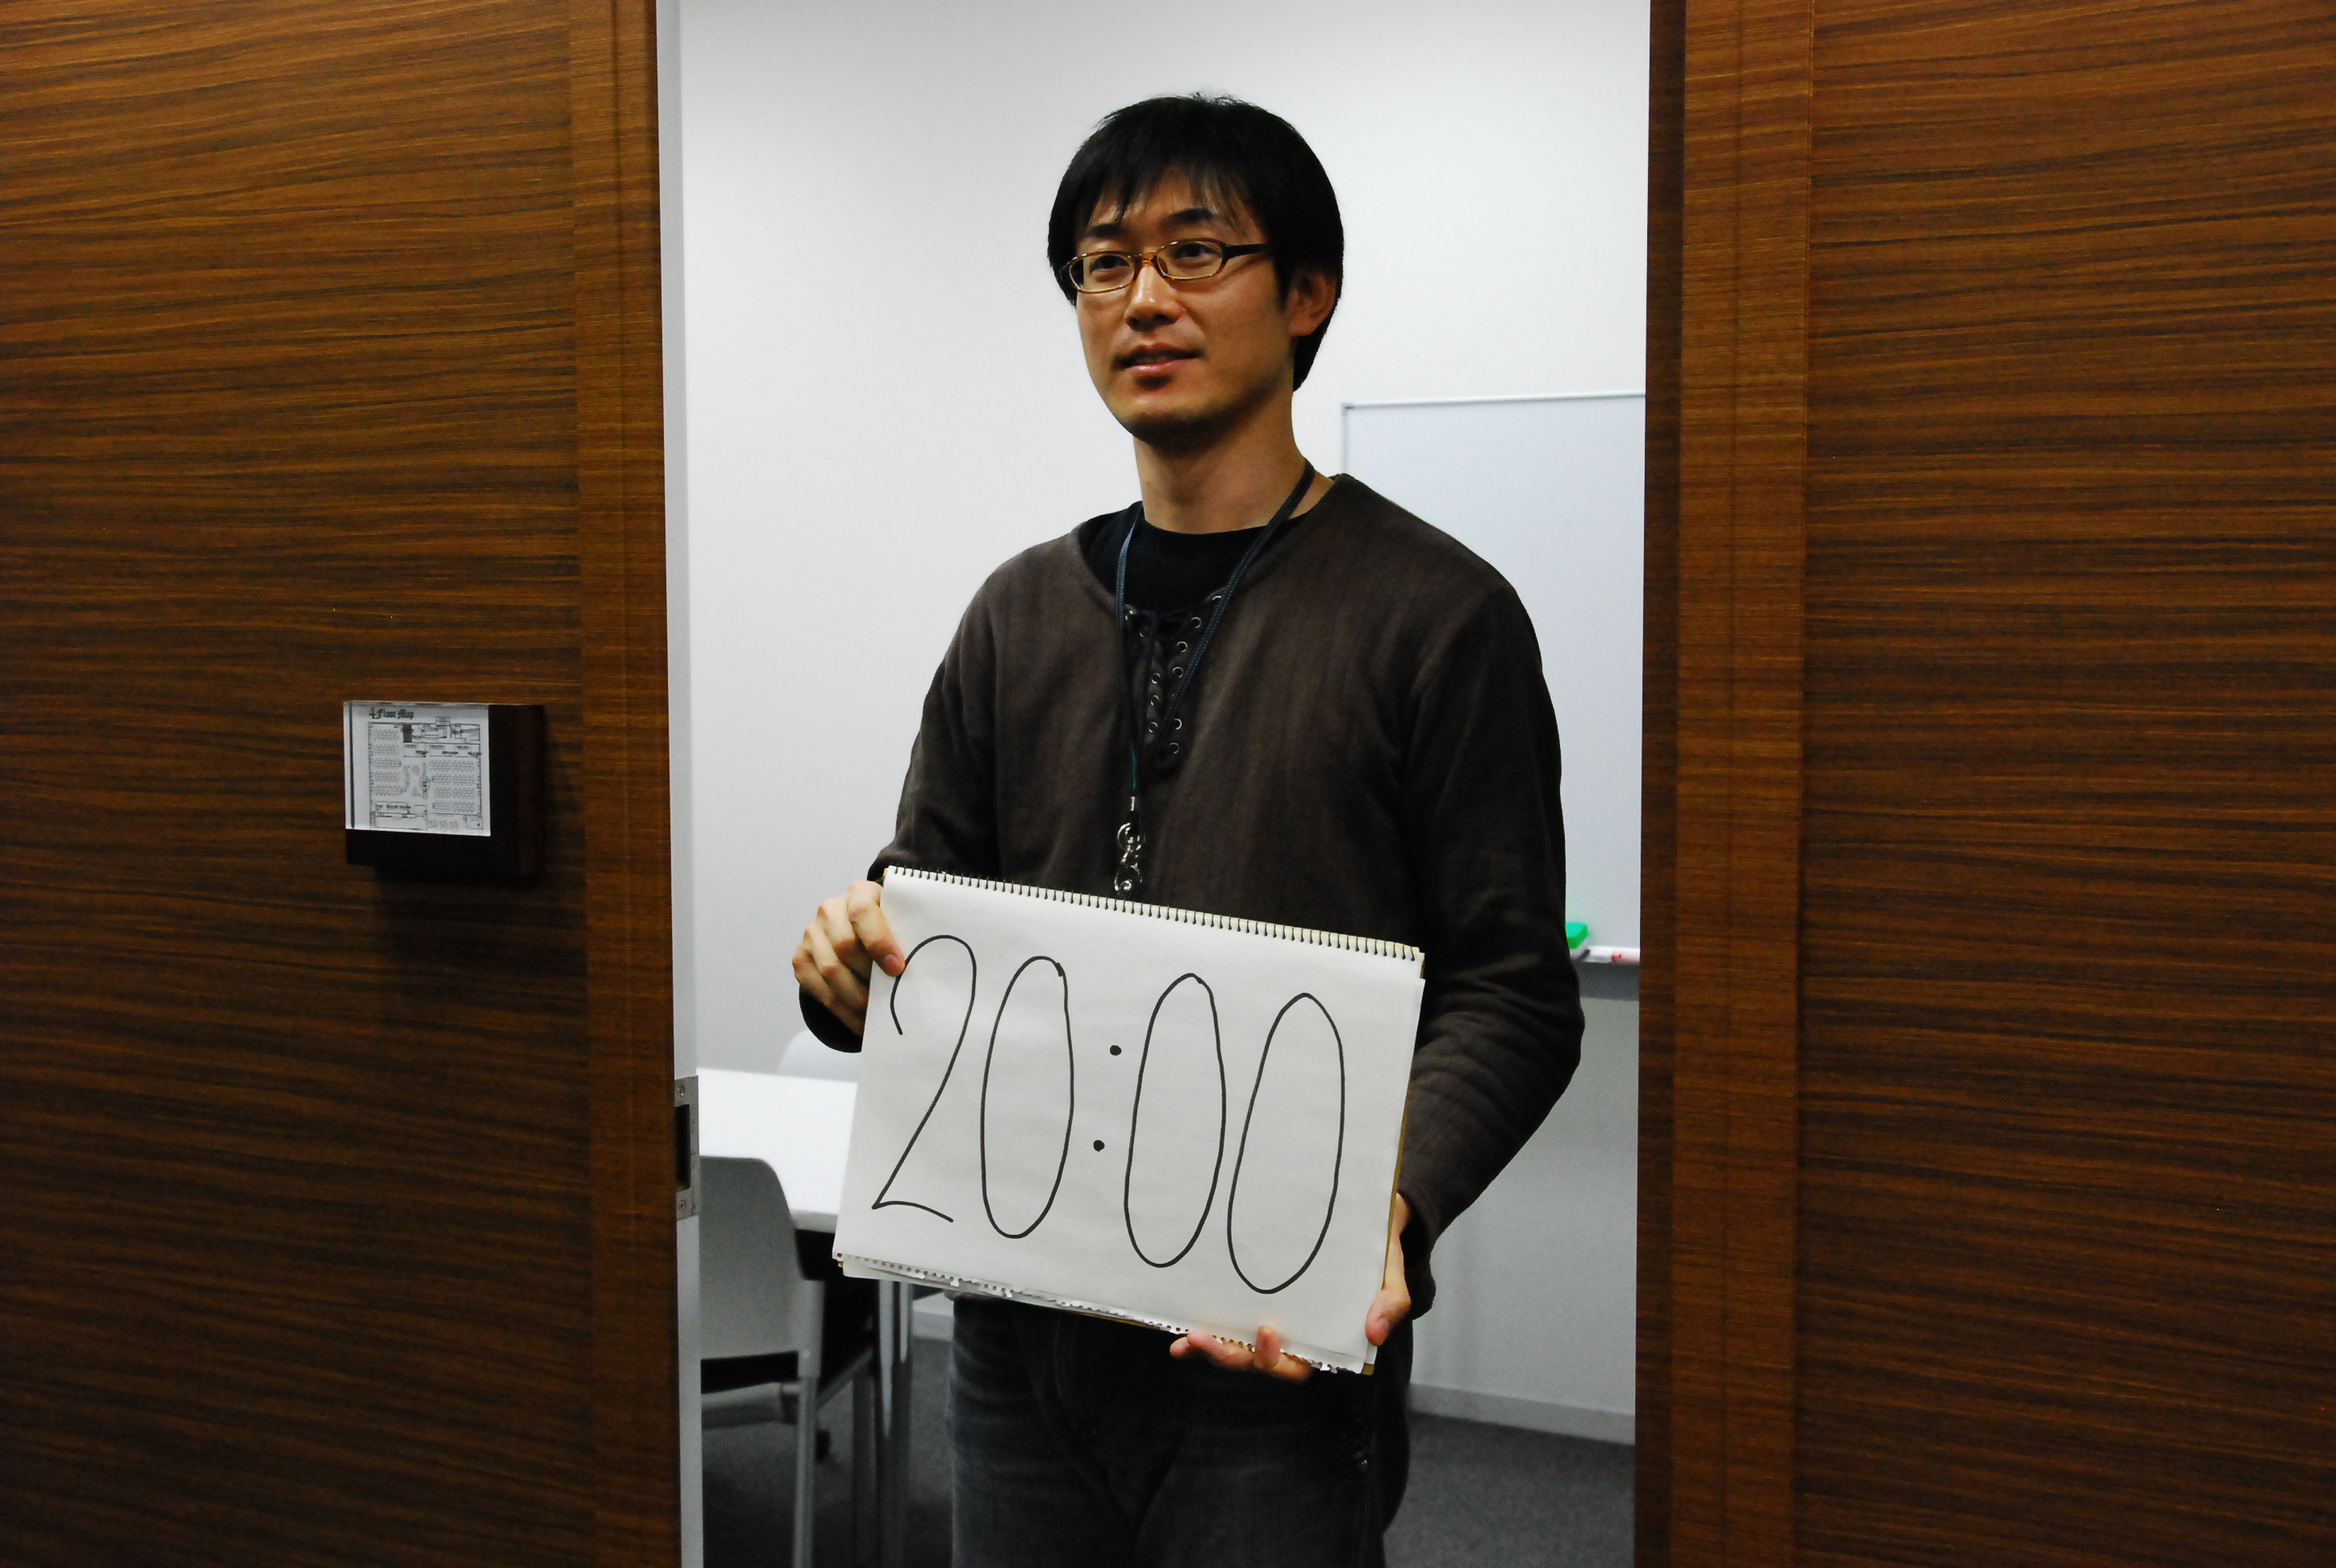 4 Floor Map
20:00